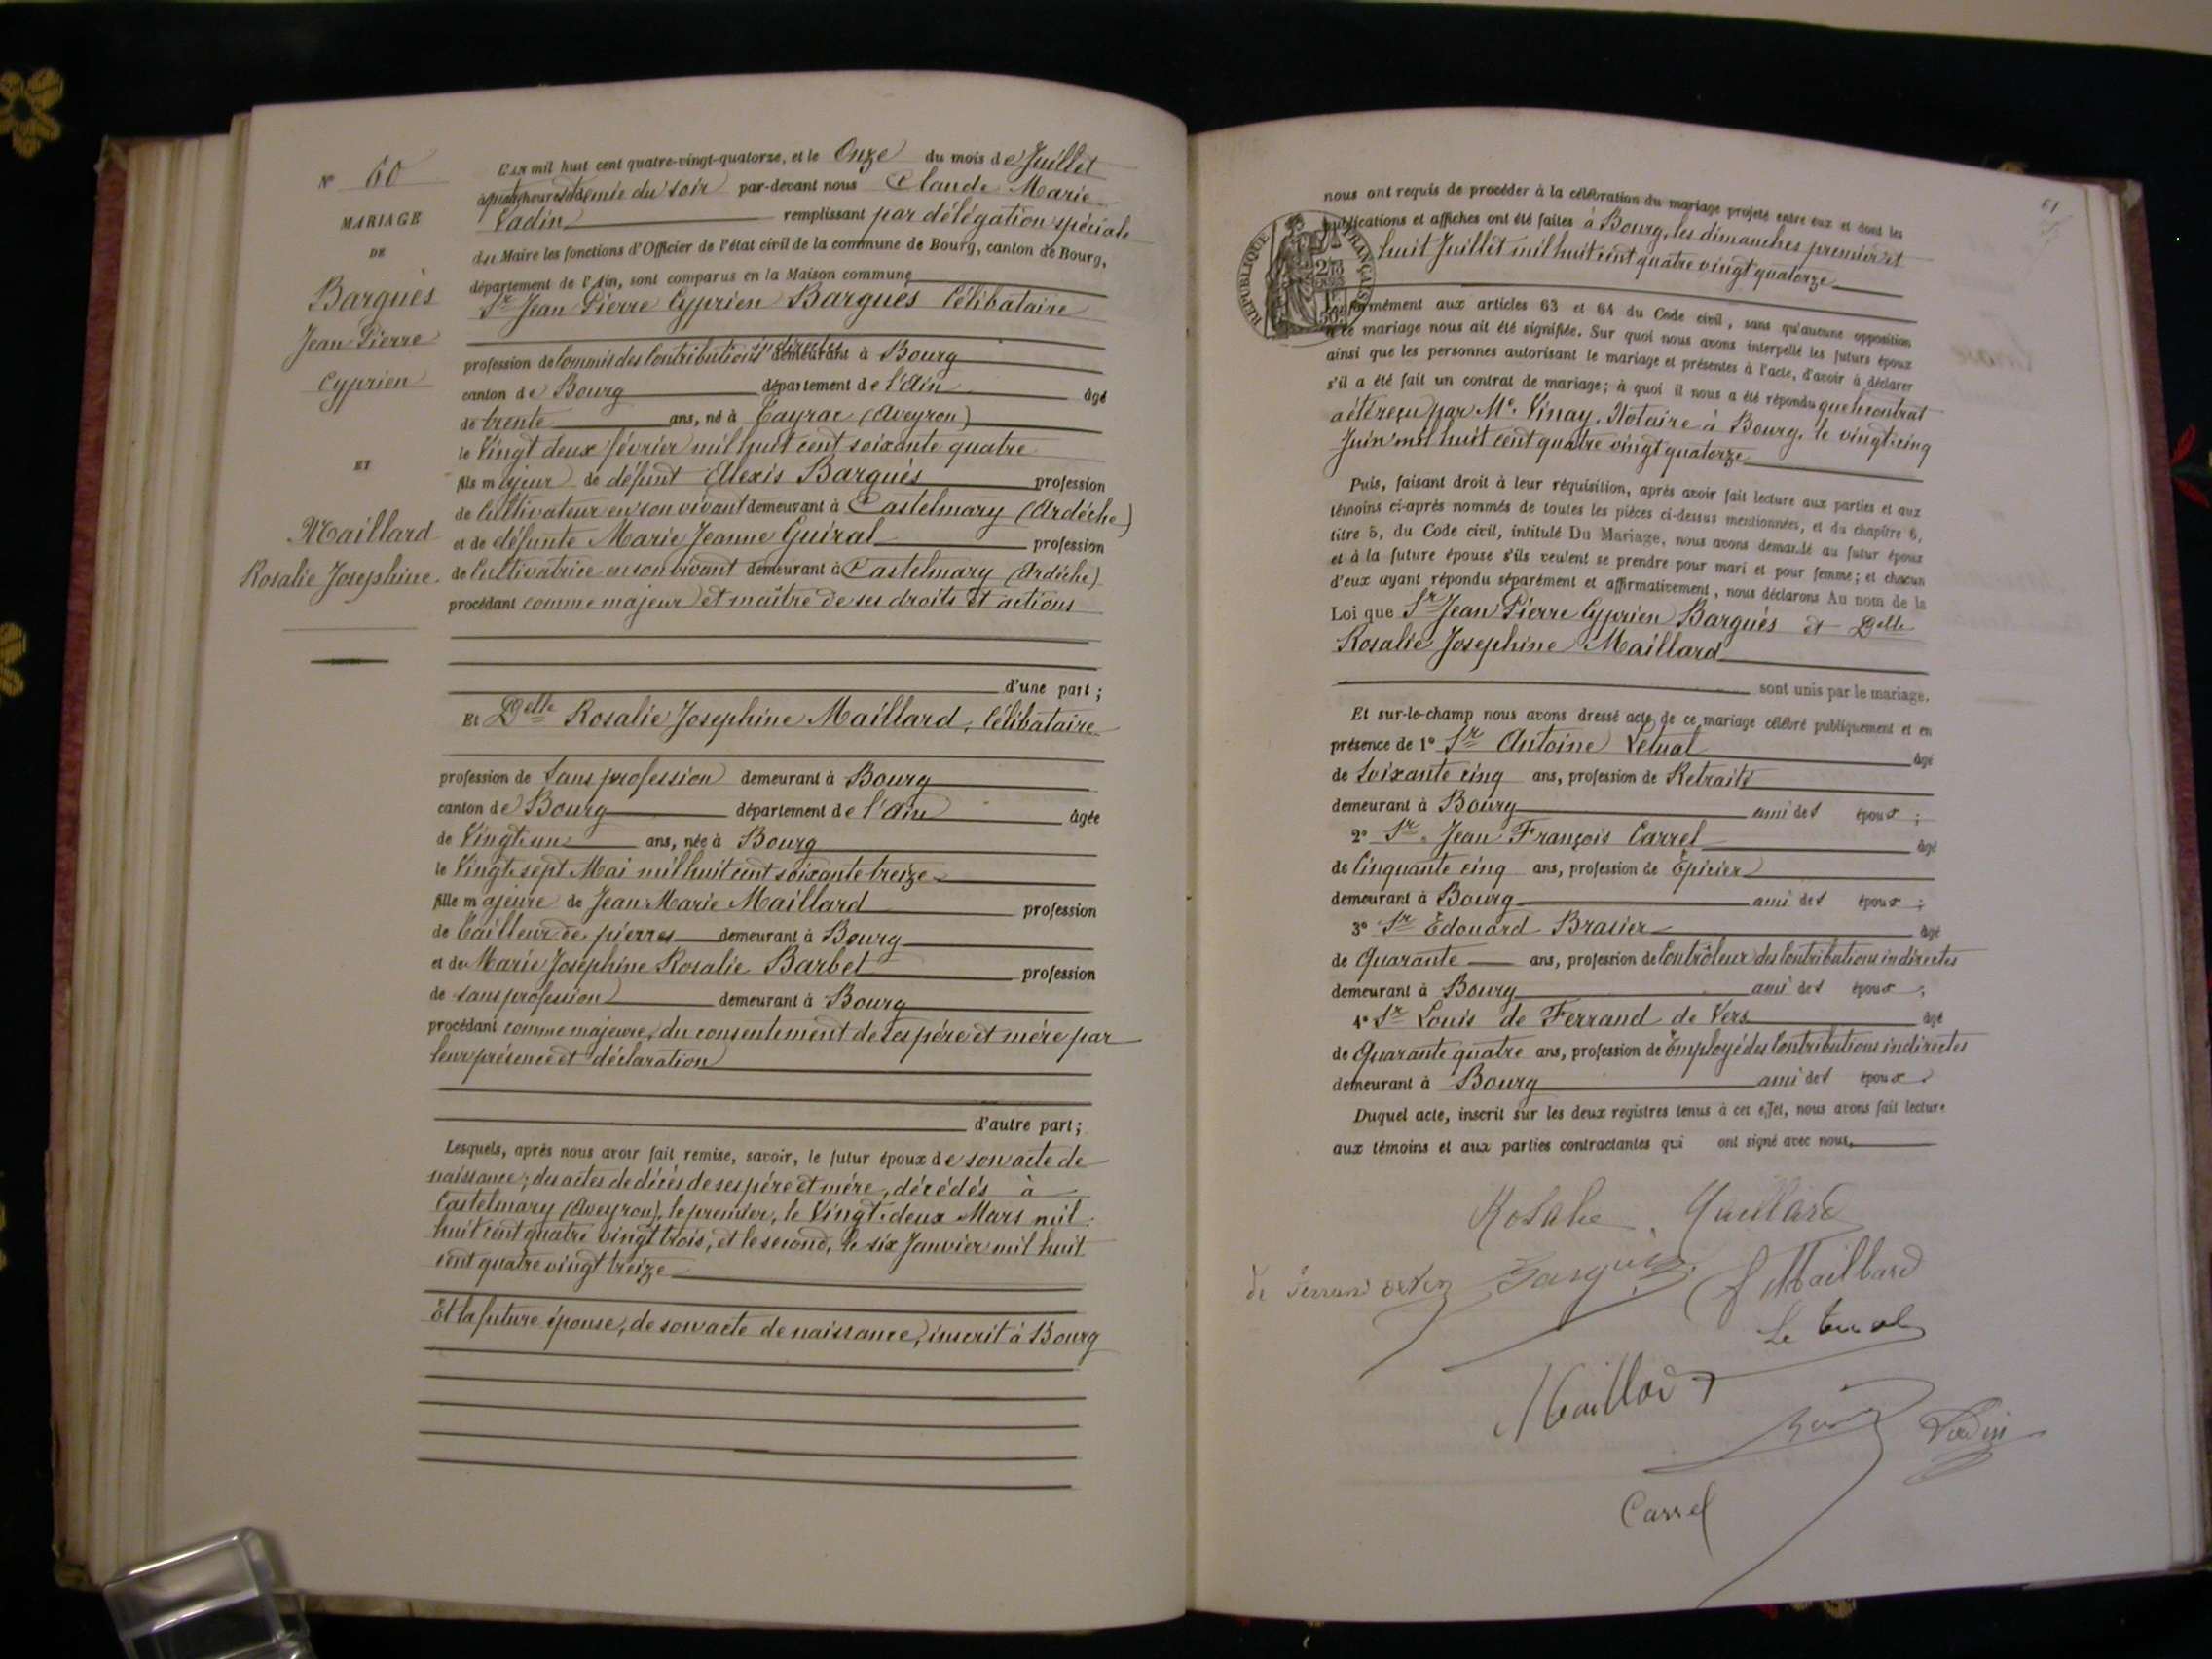 N° 60
MARIAGE
DE
Barguès
Jean Pierre
Cyprien
ET
Maillard
Rosalie Josephine.
L'AN mil huit cent quatre-vingt-quatorze, et le Onze du mois de Juillet
à quatre heures demie du soir par-devant nous Claude Marie
Vadin remplissant par délégation spéciale
du Maire les fonctions d'Officier de l'état civil de la commune de Bourg, canton de Bourg,
département de l'Ain, sont comparus en la Maison commune
Sr Jean Pierre Cyprien Barguès Célibataire
profession de Commis des Contributions indirectes demeurant à Bourg
canton de Bourg département de l'Ain âgé
de trente ans, né à Tayrac (Aveyron)
le Vingt deux février mil huit cent soixante quatre
fils majeur de défunt Alexis Barguès profession
de Cultivateur en son vivant demeurant à Castelmary (Ardéche)
et de défunte Marie Jeanne Guiral profession
de Cultivatrice en son vivant demeurant à Castelmary (Ardéche)
procédant comme majeur et maître de ses droits et actions
d'une part ;
Et Delle Rosalie Josephine Maillard, Célibataire
profession de Sans profession demeurant à Bourg
canton de Bourg département de l'Ain âgée
de Vingt un ans, née à Bourg
le Vingt sept Mai mil huit cent soixante treize
fille majeure de Jean Marie Maillard profession
de Tailleur de pierres demeurant à Bourg
et de Marie Joséphine Rosalie Barbet profession
de sans profession demeurant à Bourg
procédant comme majeure, du consentement de ses père et mère par
leur présence et déclaration
d'autre part ;
Lesquels, après nous avoir fait remise, savoir, le futur époux de son acte de
naissance; des actes de décès de ses père et mère, décédés à
Castelmary (Aveyron), le premier, le Vingt deux Mars mil
huit cent quatre vingt trois, et le second, le six Janvier mil huit
cent quatre vingt treize
Et la future épouse, de son acte de naissance, inscrit à Bourg
61
nous ont requis de procéder à la célébration du mariage projeté entre eux et dont les
publications et affiches ont été faites à Bourg, les dimanches premier et
huit Juillet mil huit cent quatre vingt quatorze
RÉPUBLIQUE FRANÇAISE
conformément aux articles 63 et 64 du Code civil, sans qu'aucune opposition
à ce mariage nous ait été signifiée. Sur quoi nous avons interpellé les futurs époux
ainsi que les personnes autorisant le mariage et présentes à l'acte, d'avoir à déclarer
s'il a été fait un contrat de mariage; à quoi il nous a été répondu que le contrat
a été reçu par Me. Vinay, Notaire à Bourg, le vingt cinq
Juin mil huit cent quatre vingt quatorze
Puis, faisant droit à leur réquisition, après avoir fait lecture aux parties et aux
témoins ci-après nommés de toutes les pièces ci-dessus mentionnées, et du chapitre 6,
titre 5, du Code civil, intitulé Du Mariage, nous avons demandé au futur époux
et à la future épouse s'ils veulent se prendre pour mari et pour femme; et chacun
d'eux ayant répondu séparément et affirmativement, nous déclarons Au nom de la
Loi que Sr Jean Pierre Cyprien Barguès et Delle
Rosalie Josephine Maillard
sont unis par le mariage.
Et sur-le-champ nous avons dressé acte de ce mariage célébré publiquement et en
présence de 1° Sr Antoine Letual âgé
de Soixante cinq ans, profession de Retraité
demeurant à Bourg ami des époux ;
2° Sr Jean François Carrel âgé
de Cinquante cinq ans, profession de Épicier
demeurant à Bourg ami des époux ;
3° Sr Edouard Brasier âgé
de Quarante ans, profession de Contrôleur des Contributions indirectes
demeurant à Bourg ami des époux ;
4° Sr Louis de Ferrand de Vers âgé
de Quarante quatre ans, profession de Employé des Contributions indirectes
demeurant à Bourg ami des époux.
Duquel acte, inscrit sur les deux registres tenus à cet effet, nous avons fait lecture
aux témoins et aux parties contractantes qui ont signé avec nous,
Rosalie Maillard
Barguès
J Maillard
Maillard
Vadin
Carrel